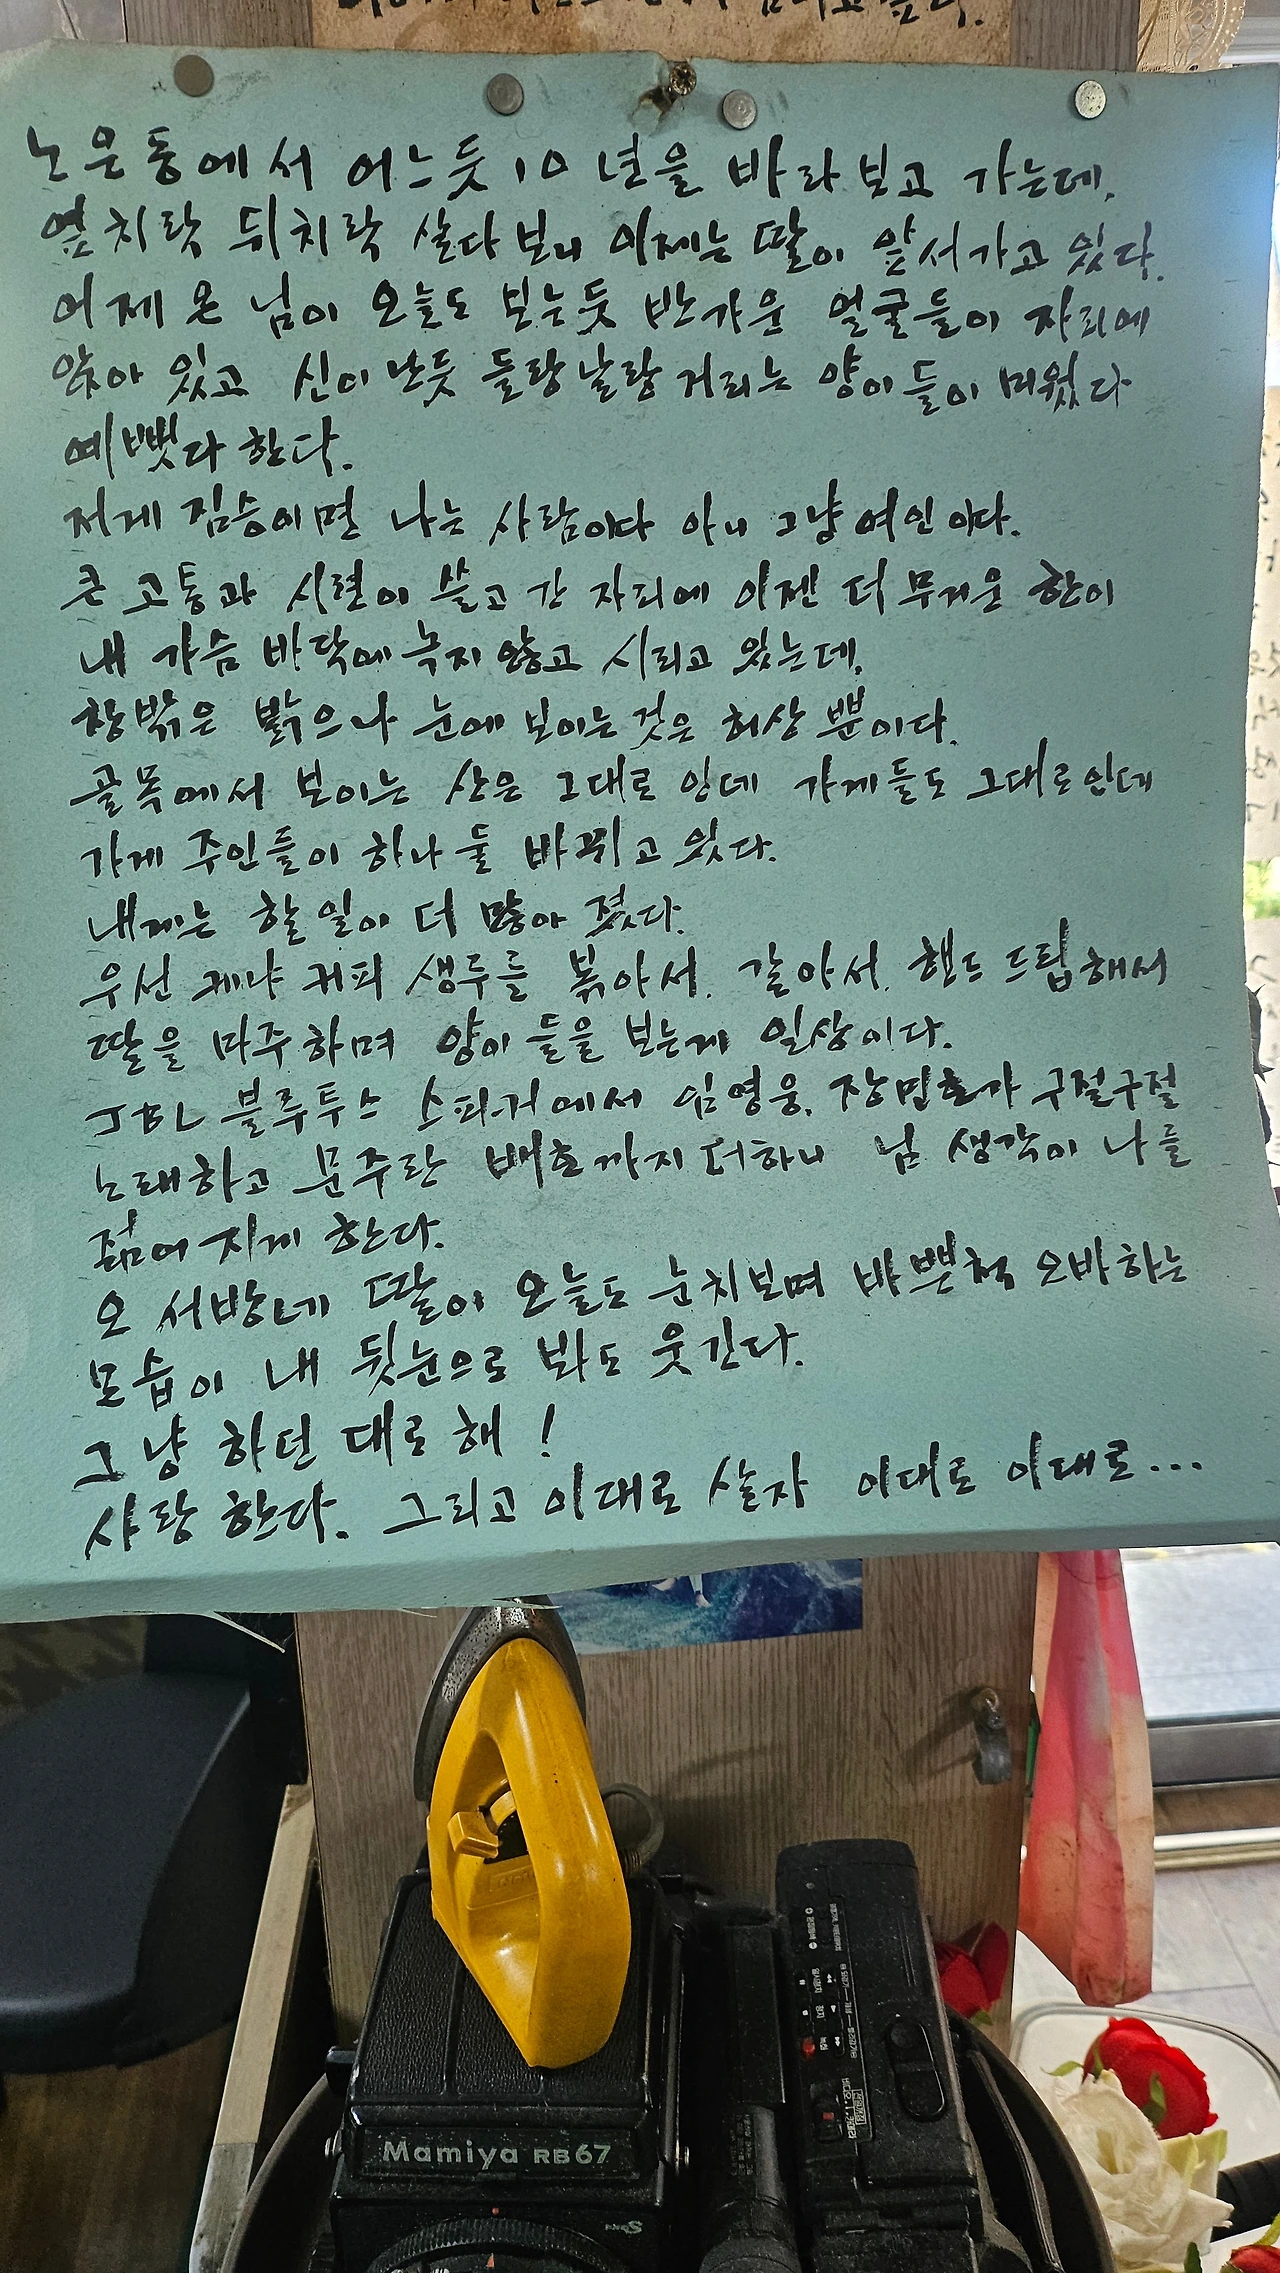 노은동에서 어느듯 10년을 바라보고 가는데.
엎치락 뒤치락 살다보니 이제는 딸이 앞서가고 있다.
어제 온 님이 오늘도 보는듯 반가운 얼굴들이 자리에
앉아 있고 신이난듯 들랑날랑 거리는 양이들이 미웠다
예뻤다 한다.
저게 짐승이면 나는 사람이다 아니 그냥 여인이다.
큰 고통과 시련이 쓸고 간 자리에 이젠 더 무거운 한이
내 가슴 바닥에 녹지 않고 시리고 있는데.
창밖은 밝으나 눈에 보이는 것은 허상 뿐이다.
골목에서 보이는 산은 그대로 인데 가게들도 그대로인데
가게 주인들이 하나 둘 바뀌고 있다.
내게는 할 일이 더 많아 졌다.
우선 케냐 커피 생두를 볶아서. 갈아서. 핸드 드립해서
딸을 마주하며 양이들을 보는게 일상이다.
JBL 블루투스 스피커에서 임영웅. 장민호가 구절구절
노래하고 문주란 배호까지 더하니 님 생각이 나를
젊어지게 한다.
오 서방네 딸이 오늘도 눈치보며 바쁜척 오바하는
모습이 내 뒷눈으로 봐도 웃긴다.
그냥 하던 대로 해!
사랑한다. 그리고 이대로 살자 이대로 이대로...
Mamiya RB67